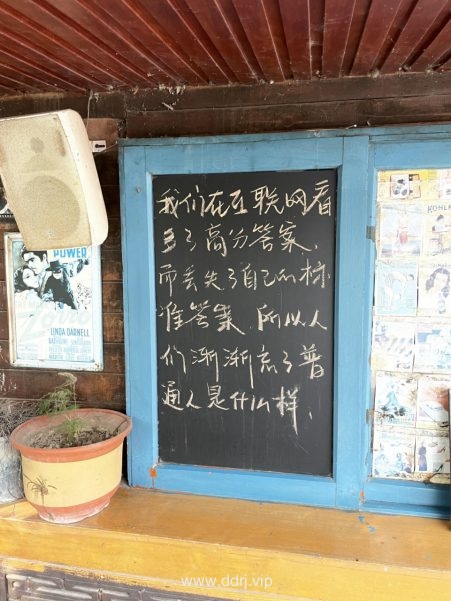 我们在互联网看
多了高分答案、
而丢失了自己的标
准答案、所以人
们渐渐忘了普
通人是什么样、
POWER
LINDA DARNELL
www.ddrj.vip